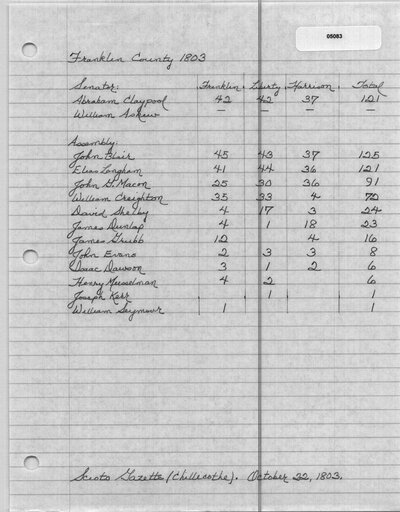 05083
Franklin County 1803
Senator: Franklin Liberty Harrison Total
Abraham Claypool 42 42 37 121
William Askew — — — —
Assembly:
John Blair 45 43 37 125
Elias Langham 41 44 36 121
John G. Macon 25 30 36 91
William Creighton 35 33 4 72
David Shelby 4 17 3 24
James Dunlap 4 1 18 23
James Grubb 12 4 16
John Evans 2 3 3 8
Isaac Dawson 3 1 2 6
Henry Musselman 4 2 6
Joseph Kerr 1 1
William Seymour 1 1
Scioto Gazette (Chillicothe). October 22, 1803.